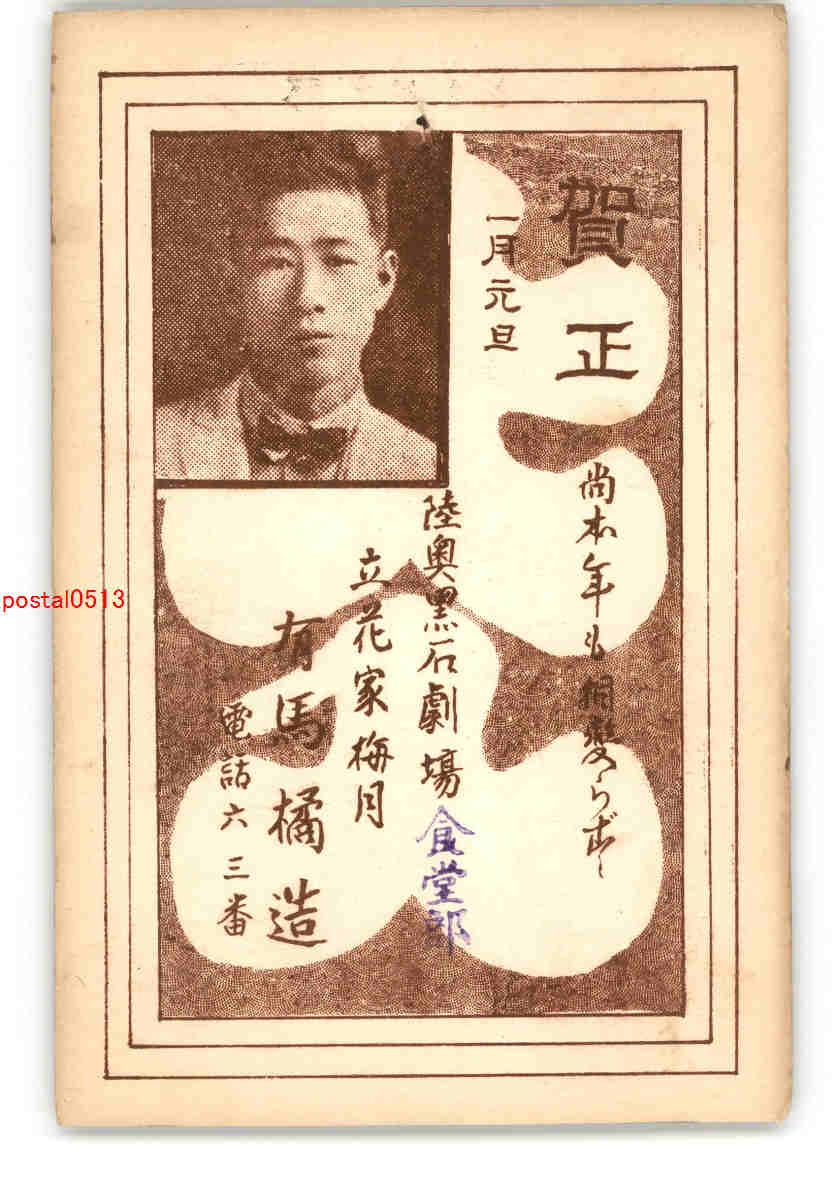 賀正
一月元旦
尚本年も相變らず〻
陸奥黒石劇場食堂部
立花家梅月
有馬橘造
電話六三番
postal0513